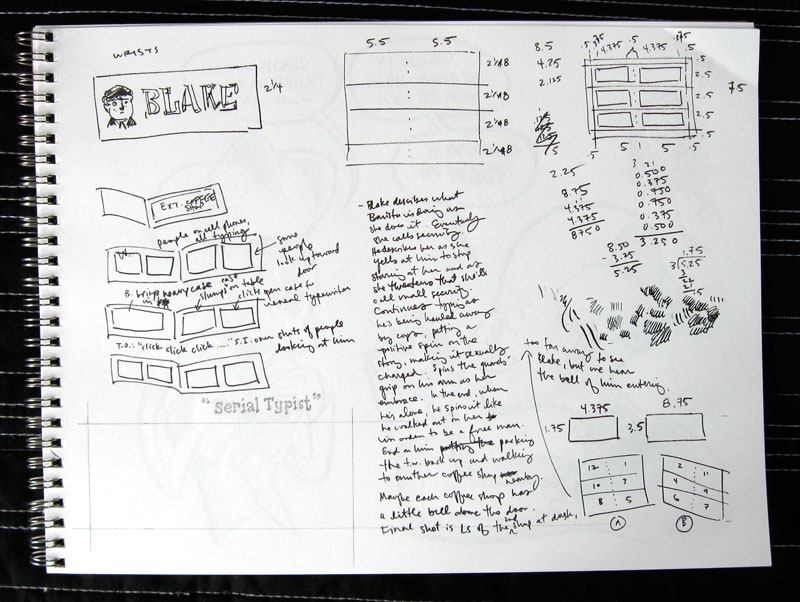 WRISTS
BLAKE
2 1/4
EXT. COFFEE
SHOP
people on cell phones,
all typing
some
people
look up toward
door
B. brings heavy case in
case
slumps on table
clicks open case to
reveal typewriter
T.W.: "click click click ...." S.I. over shots of people
looking at him
"Serial Typist"
5.5 5.5
2 1/4 8
2 1/4 8
2 1/4 8
2 1/4 8
- Blake describes what
Barista is doing as
she does it. Eventually
she calls security.
He describes her as she
yells at him to stop
staring at her and as
she threatens that she'll
call mall security.
Continues typing as
he's being hauled away
by cops, putting a
positive spin on the
story, making it sexually
charged. Spins the guards'
grip on his arm as her
embrace. In the end, when
he's alone, he spins it like
he walked out on her
in order to be a free man.
End on him putting the packing
the t.w. back up and walking
to another coffee shop nearby.
Maybe each coffee shop has
a little bell above the door.
Final shot is LS of the 2nd shop at dusk,
too far away to see
Blake, but we hear
the bell of him entering.
8.5
4.25
2.125
.5 .375 .5 .375
.5 4.375 4.375 .5
.5
2.5
2.5
2.5
.5
7.5
.5 5 1 5 .5
2.25
8.75
4.375
4.375
8750
3 21
0.500
0.375
0.750
0.750
0.375
0.500
3.250
8.50
- 3.25
5.25
1.75
3 5.25
3
22
21
15
4.375
1.75
8.75
3.5
12 1
10 3
8 5
A
2 11
4 9
6 7
B